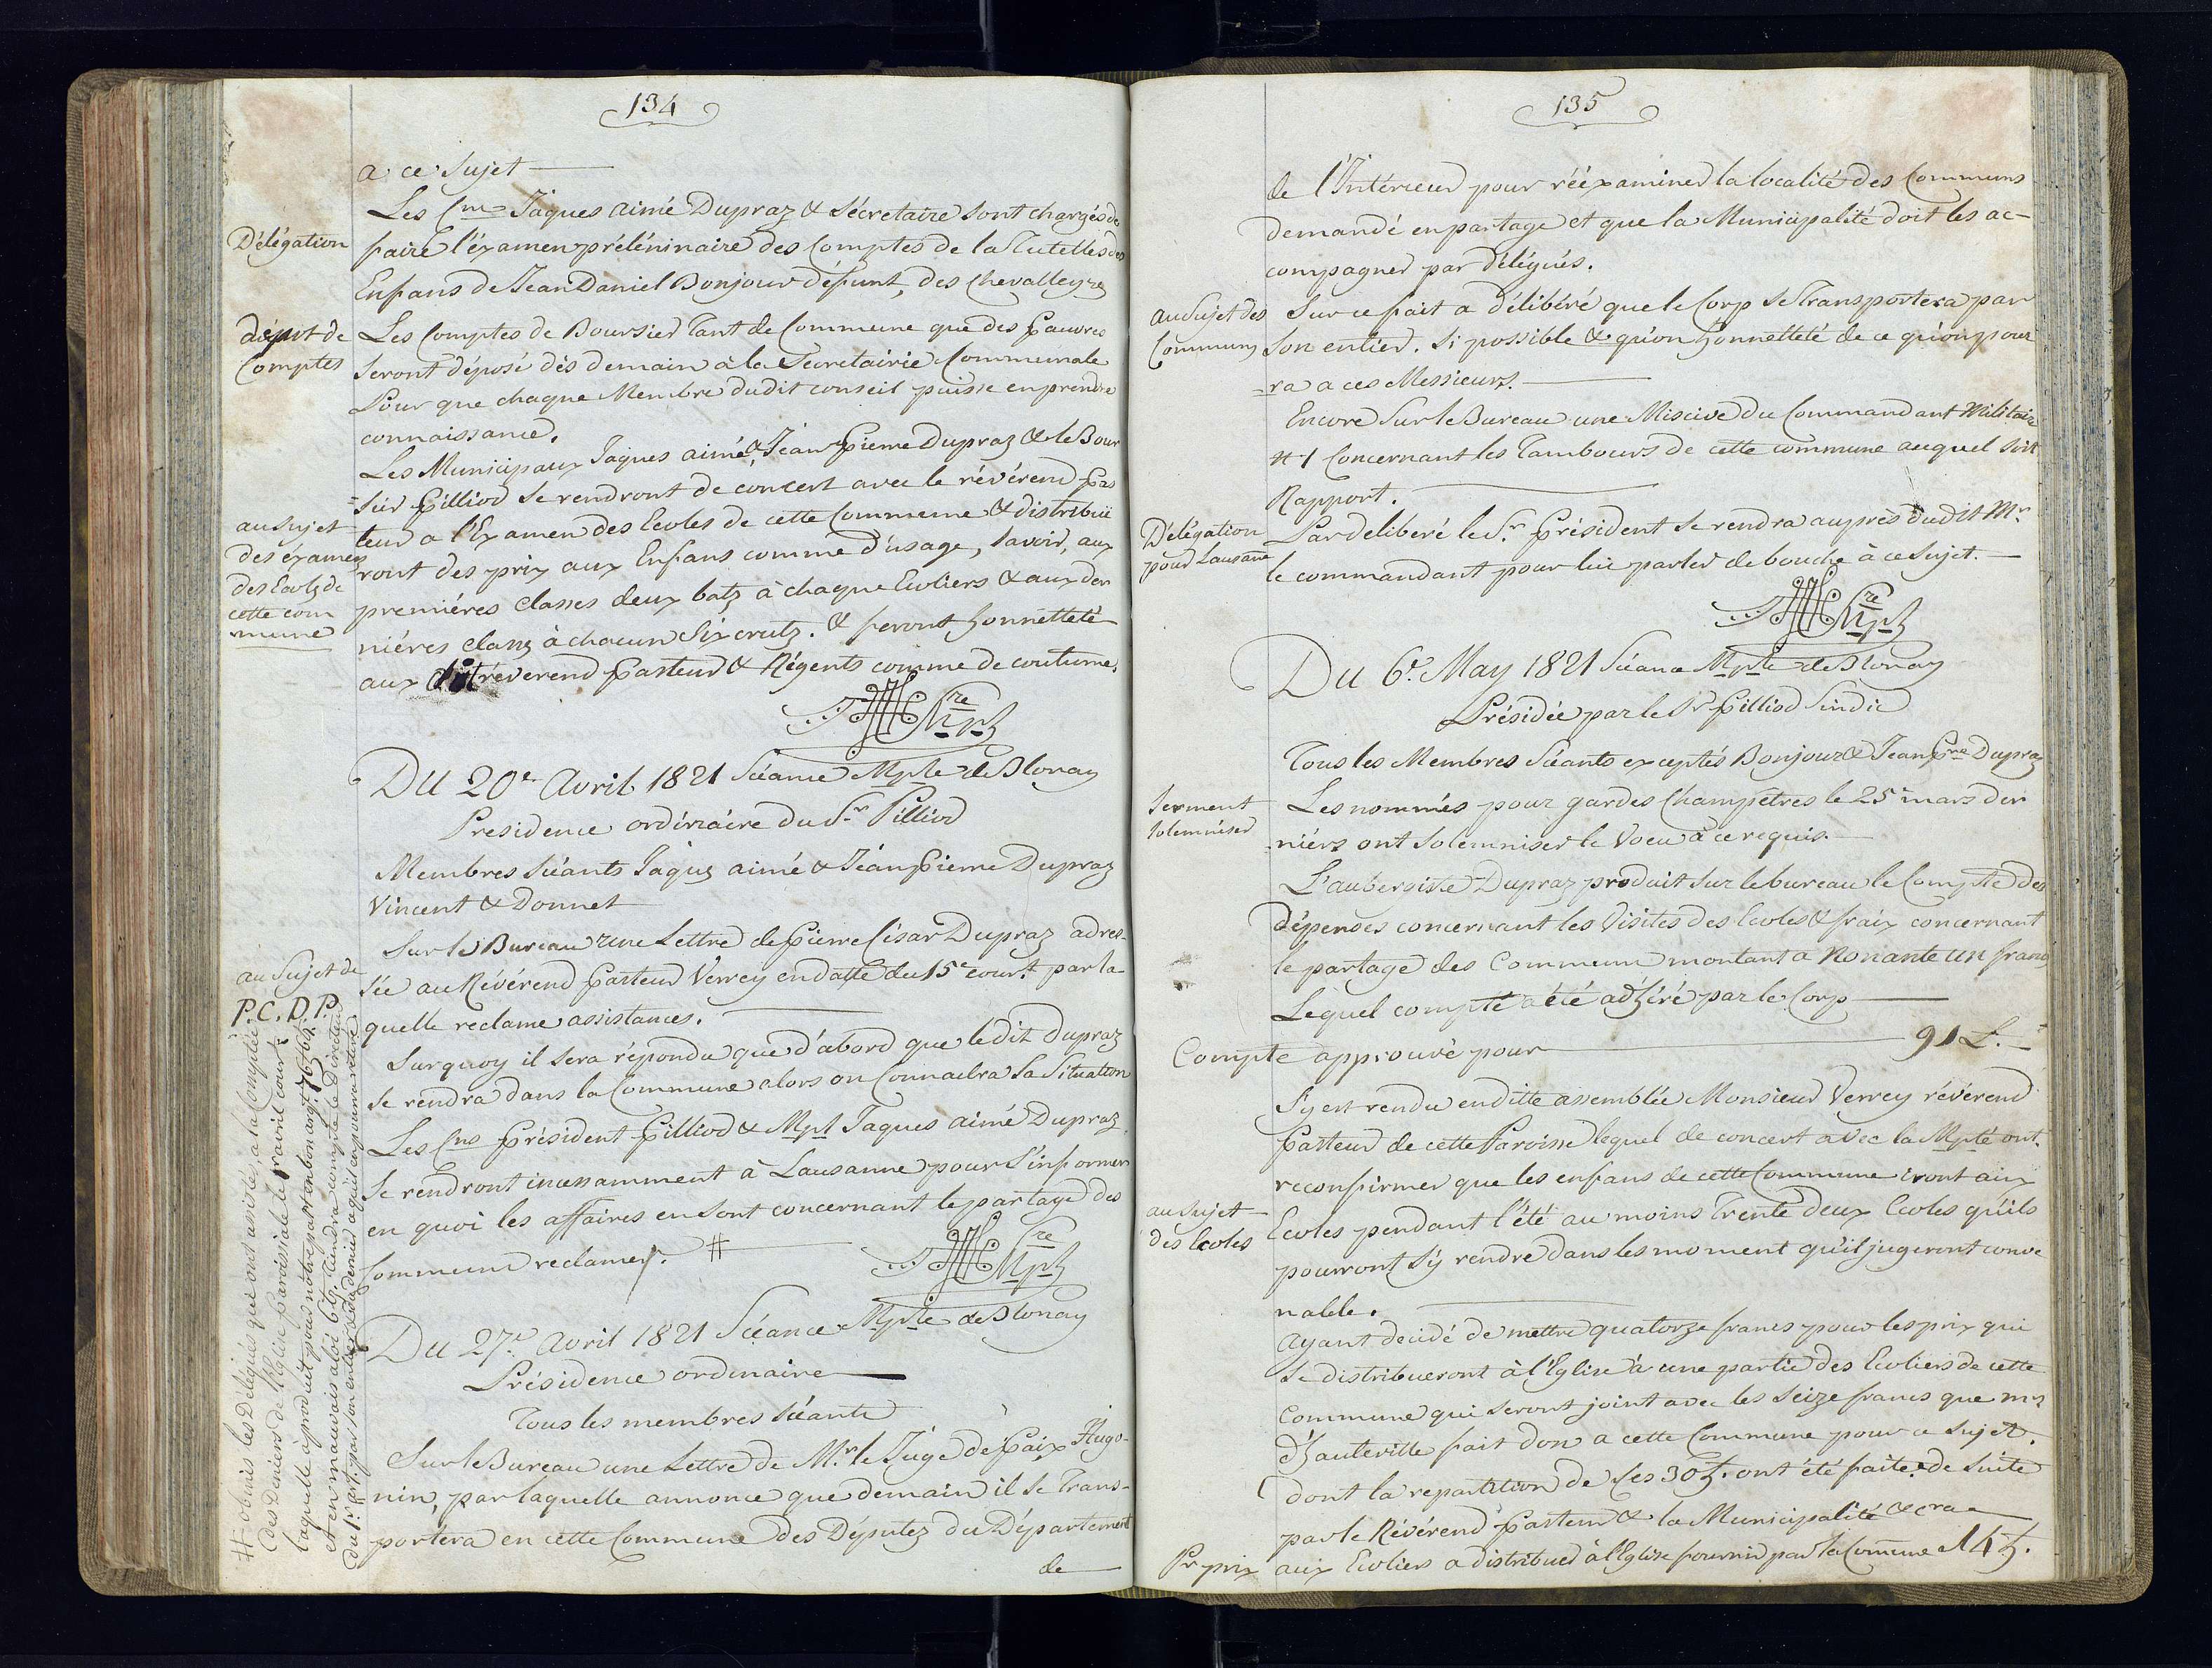 134
a ce Sujet
Les Cns Jaques aimé Dupraz & Sécretaire sont chargés de
Délégation
faire l'éxamen préléninaire des Comptes de la Tutelles des
Enfans de Jean Daniel Bonjour défunt, des Chevalleyres
dépot de
Comptes
Les Comptes de Boursier Tant de Commune que des Pauvres
Seront déposé dès demain à la Secretairie Communale
Pour que chaque Membre dudit conseil puisse en prendre
connaissance.
Les Municipaux Jaques aimé & Jean Pierre Dupraz & le Bour
=sier Pilliod se rendront de concert avec le révérend Pas
au Sujet
des éxamens
des Ecoles de
cette com
mune
teur a l'Examen des Ecoles de cette Commune & distribue
ront des prix aux Enfans comme d'usage, savoir, aux
premiéres classes deux batz à chaque Ecoliers & aux der
niéres classes à chacun Six crutz. & feront honnetteté
aux dit révérend Pasteur & Régents comme de coutume.
Sre Mpl
Du 20e Avril 1821 Séance Mple de Blonay
Présidence ordinaire du Sr Pilliod
Membres Séants Jaques aimé & Jean Pierre Dupraz
Vincent & Donnet
Sur le Bureau une Lettre de Pierre César Dupraz adres-
au Sujet de
P. C. D. P.
sée au Révérend Pasteur Verrey en datte du 15e cour.t par la-
quelle reclame assistances.
Surquoy il sera répondu que d'abord que ledit Dupraz
se rendra dans la Commune alors on Connaitra Sa Situation
Les Cns Président Pilliod & Mpl Jaques aimé Dupraz
se rendront incessamment à Lausanne pour S'informer
en quoi les affaires en sont concernant le partage des
Commun reclamer. #
Sre Mpl
# obmis les Délégués qui ont assistés, a la Comptée
des Deniers de l'Eglise paroissiale le 1r avril cour.t
laquelle a produit pour nôtre part en bon argt.
et en mauvais aloi
du 1r art. par son entier
Du 27e Avril 1821 Séance Mple de Blonay
Présidence ordinaire
Tous les membres séants
Sur le Bureau une Lettre de Mr. le Juge de Paix Hugo-
nin, par laquelle annonce que demain il se Trans-
portera en cette Commune des Députez du Département
de
135
de l'Intérieur pour rééxaminer la localité des Communs
demandé en partage et que la Municipalité doit les ac-
compagner par Délégués.
au Sujet des
Communs
Sur ce fait a délibéré que le Corp se Transportera par
Son entier. Si possible & qu'on honnetteté de ce qu'on pour
=ra a ces Messieurs.
Encore Sur le Bureau une Miscive du Commandant Militaire
N 1 Concernant les Tambours de cette commune auquel soit
Rapport.
Délégation
pour Lausanne
Par deliberé le Sr. Président se rendra auprès dudit Mr.
le commandant pour lui parler de bouche à ce Sujet.
Sre Mpl
Du 6e. May 1821 Séance Mple de Blonay
Présidée par le Sr Pilliod Sindic
Tous les Membres Séants exceptés Bonjour & Jean Pre Dupraz
Serment
Solemniser
Les nommés pour gardes Champêtres le 25e mars der
=niérs ont Solemniser le Voeu à ce requis.
L'aubergiste Dupraz produit sur le bureau le Compte des
Dépenses concernant les Visites des Ecoles & fraix concernant
le partage des Commun montant a Nonante un francs
Lequel compte a été adhéré par le Corp
Compte approuvé pour 91 L.
S'y est rendu en ditte assemblée Monsieur Verrey révérend
Pasteur de cette Paroisse lequel de concert avec la Mpté ont.
reconfirmer que les enfans de cette Commune iront aux
au Sujet
des Ecoles
Ecoles pendant l'été au moins Trente deux Ecoles qu'ils
pourront s'y rendre dans les moment qu'il jugeront conve
nable.
Ayant decidé de mettre quatorze francs pour les prix qui
se distribueront à l'Eglise à une partie des Ecoliers de cette
Commune qui seront joint avec les Seize francs que mr
d'hauteville fait don a cette Commune pour ce Sujet.
dont la repartition de ses 30 f. ont été faite de suite
par le Révérend Pasteur & la Municipalité
Pr prix
aux Ecoliers a distribuer à l'Eglise fournir par la Comune 14 f.